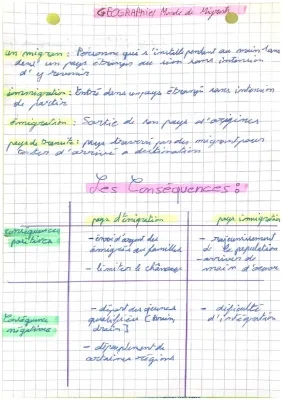 GEOGRAPHIE: Monde de Migrants
un migrant : Personne qui s'installe pendant au moins 1 ans
dans un pays étranger au sien sans intension
d'y revenir
immigration : Entré dans un pays étrangé sans intension
de partir
émigration : Sortie de son pays d'origines
pays de transite : pays traversé par des migrant pour
d'arrivé a destination
Les Conséquences :
pays d'émigration
pays immigration
Conséquences
positives
- envoi d'argent des
émigrés au familles
- limiter le chômage
- rajeunissement
de la population
- arrivée de
main d'oeuvre
Conséquence
négatives
- départ des jeunes
qualifiées (brain
drain)
- dépeuplement de
certaines régions
- dificulté
d'intégration